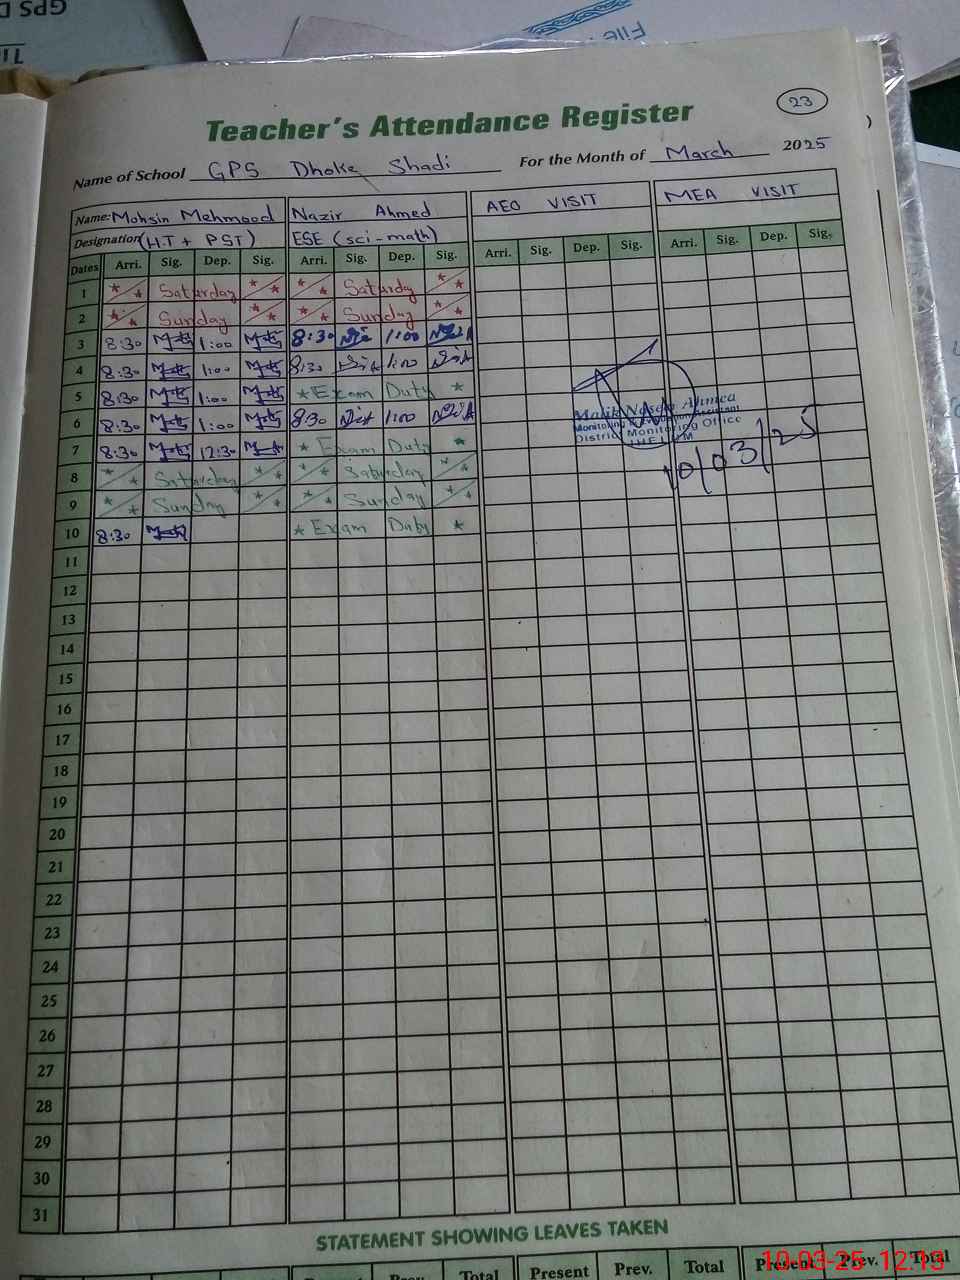 GPS D
FILE
23
Teacher's Attendance Register
Name of School GPS Dhoke Shadi For the Month of March 2025
Name: Mohsin Mehmood Nazir Ahmed AEO VISIT MEA VISIT
Designation (H.T + PST) ESE (sci-math)
Dates Arri. Sig. Dep. Sig. Arri. Sig. Dep. Sig. Arri. Sig. Dep. Sig. Arri. Sig. Dep. Sig.
1 * * Saturday * * * * Saturday * *
2 * * Sunday * * * * Sunday * *
3 8:30 1:00 8:30 1:00
4 8:30 1:00 8:30 1:00
5 8:30 1:00 * Exam Duty *
6 8:30 1:00 8:30 1:00
7 8:30 12:30 * Exam Duty *
8 * * Saturday * * * * Saturday * *
9 * * Sunday * * * * Sunday * *
10 8:30 * Exam Duty *
Malik Ahmed
Monitoring & Evaluation Assistant
District Monitoring Office
JHELUM
10/03/25
11
12
13
14
15
16
17
18
19
20
21
22
23
24
25
26
27
28
29
30
31
STATEMENT SHOWING LEAVES TAKEN
Present Prev. Total Present Prev. Total Present Prev. Total
10-03-25 12:13